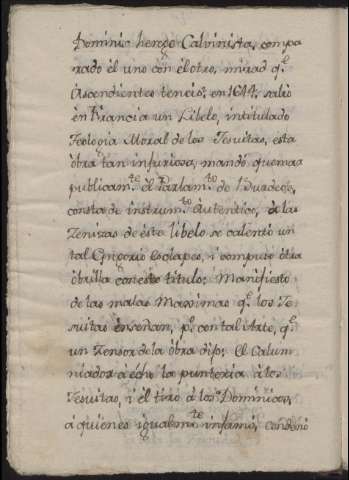 Dominio herege Calvinista, compa
rado el uno con el otro, mirad q.^e
Ascendientes teneis; en 1644, salio
en Francia un Libelo, intitulado
Teologia Moral de los Jesuitas, esta
obra tan injuriosa, mandó quemar
publicam.^te el Parlam.^to de Burdeos,
consta de instrum.^to autentico, á las
Zenizas de éste libelo se calentó un
tal Gregorio Esclapes, i compuso otra
obrilla con este titulo; Manifiesto
de las malas Maximas q.^e los Je
suitas enseñan, p.^o con tal Arte, q.^e
un Zensor de la obra dijo; El Calum
niador a écho la punteria á los
Jesuitas, i el tiro á los Dominicos,
á quienes igualm.^te infamó, condenó